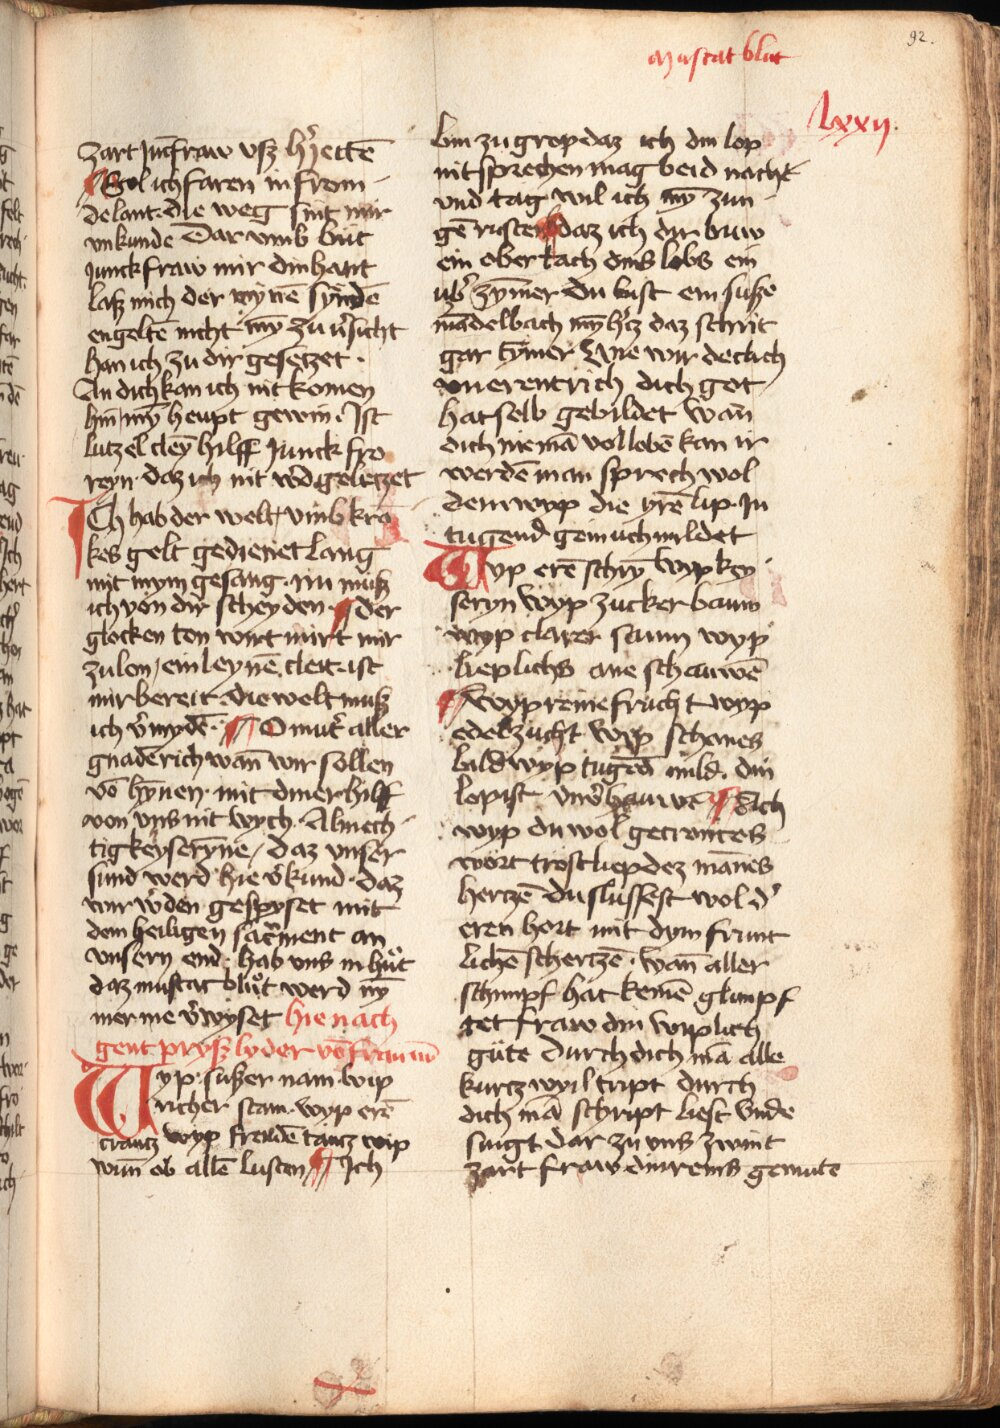 92.
Muscat blut
Lxxij.
zart Jūcfraw vsz hẏettē
Sol ich faren in from
de lant. die weg sint mir
vnkunde Dar vmb büt
junckfraw mir din hant
lasz mich der mynē syndē
engeltē nicht mȳ zu v'sicht
han ich zu dir gesetzet .
An dich kan ich nit komen
hin mȳ heupt gewin. Ist
lutzel cleȳ hilff Junckfro
reyn daz ich nit w'd geletzet
ICh hab der welt vmb kro
kes gelt gedienet lang
mit mym gesang. nu musz
ich von dir scheyden der
glocken ton wirt mirt mir
zu lon / ein leynē cleit ist
mir bereit. die welt musz
ich v'mydē. O mut' aller
gnadē rich wañ wir sollen
vō hȳnen. mit diner hilff
von vns nit wych. Almech
tig keyserynne / daz vnser
sund werd hie v'kund. daz
wir w'den gespyset mit
dem heiligen sac'ment an
vnsern end. hab vns in hüt
daz muscat blüt werd ny
mer me v'wyset hie nach
gent prysz lyder vō frauwē
Wyp süszer nam. wip
richer stam. wyp erē
crantz wyp freudē tantz wip
wūn ob allē lusten Ich
bin zu grop daz ich din lop
nit sprechen mag beid nacht
vnd tag wil ich mȳ zun
gē rusten daz ich dir buw
ein ober tach dins lobs ein
vb' zȳmer Du bist ein susze
mādelbach mȳ h'cz daz schrit
gar ȳmer Wie wir doch ich
vnerentrich dich got
hat selb gebildet wañ
dich niemā volloben kan ir
werdē man sprech wol
dem wyp die yrē lip. In
tugend gein uch mildet
Wyp erē schrȳ wyp key
seryn wyp zucker baum
wyp clarer saum wyp
lieplichs ane schauwē
Wyp reine frucht wyp
edel zucht wyp schones
bild wyp tugēd mild. din
lop ist vnv'hauwē dich
wyp du wol getruntes
wort trost liep dez mānes
hertzē Du slussest wol d'
eren hort mit dym frunt
lichē schertzē. wañ aller
schimpf hat keinē glimpf
tet fraw din wiplich
güte Durch dich mā alle
kurtzwyil tript durch
dich mā schript liest vnde
singt dar zu vns zwint
zart fraw din reins gemüte